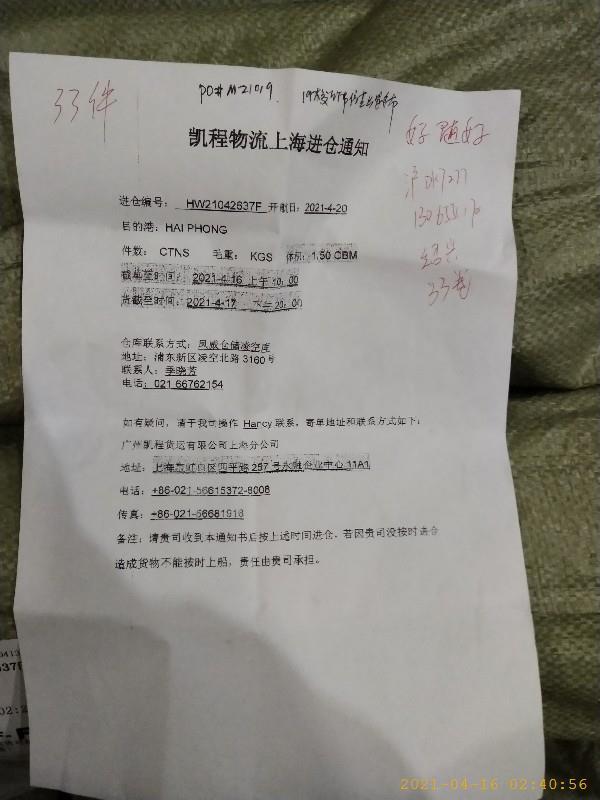 33件
PO# M21019
凯程物流上海进仓通知
进仓编号： HW21042637F 开航日：2021-4-20
目的港：HAI PHONG
件数： CTNS 毛重： KGS 体积：1.50 CBM
截单至时间：2021-4-16 上午10：00
货截至时间：2021-4-17 下午20：00
仓库联系方式：凤威仓储凌空库
地址：浦东新区凌空北路3160号
联系人：季晓芳
电话：021 66762154
如有疑问，请于我司操作 Hancy 联系，寄单地址和联系方式如下：
广州凯程货运有限公司上海分公司
地址：上海 四平路257号永融企业中心 11A1
电话：+86-021-56615372-8008
传真：+86-021-56681918
备注：请贵司收到本通知书后按上述时间进仓，若因贵司没按时进仓
造成货物不能按时上船，责任由贵司承担。
绍兴
0413
637F
02:2
2021-04-16 02:40:56